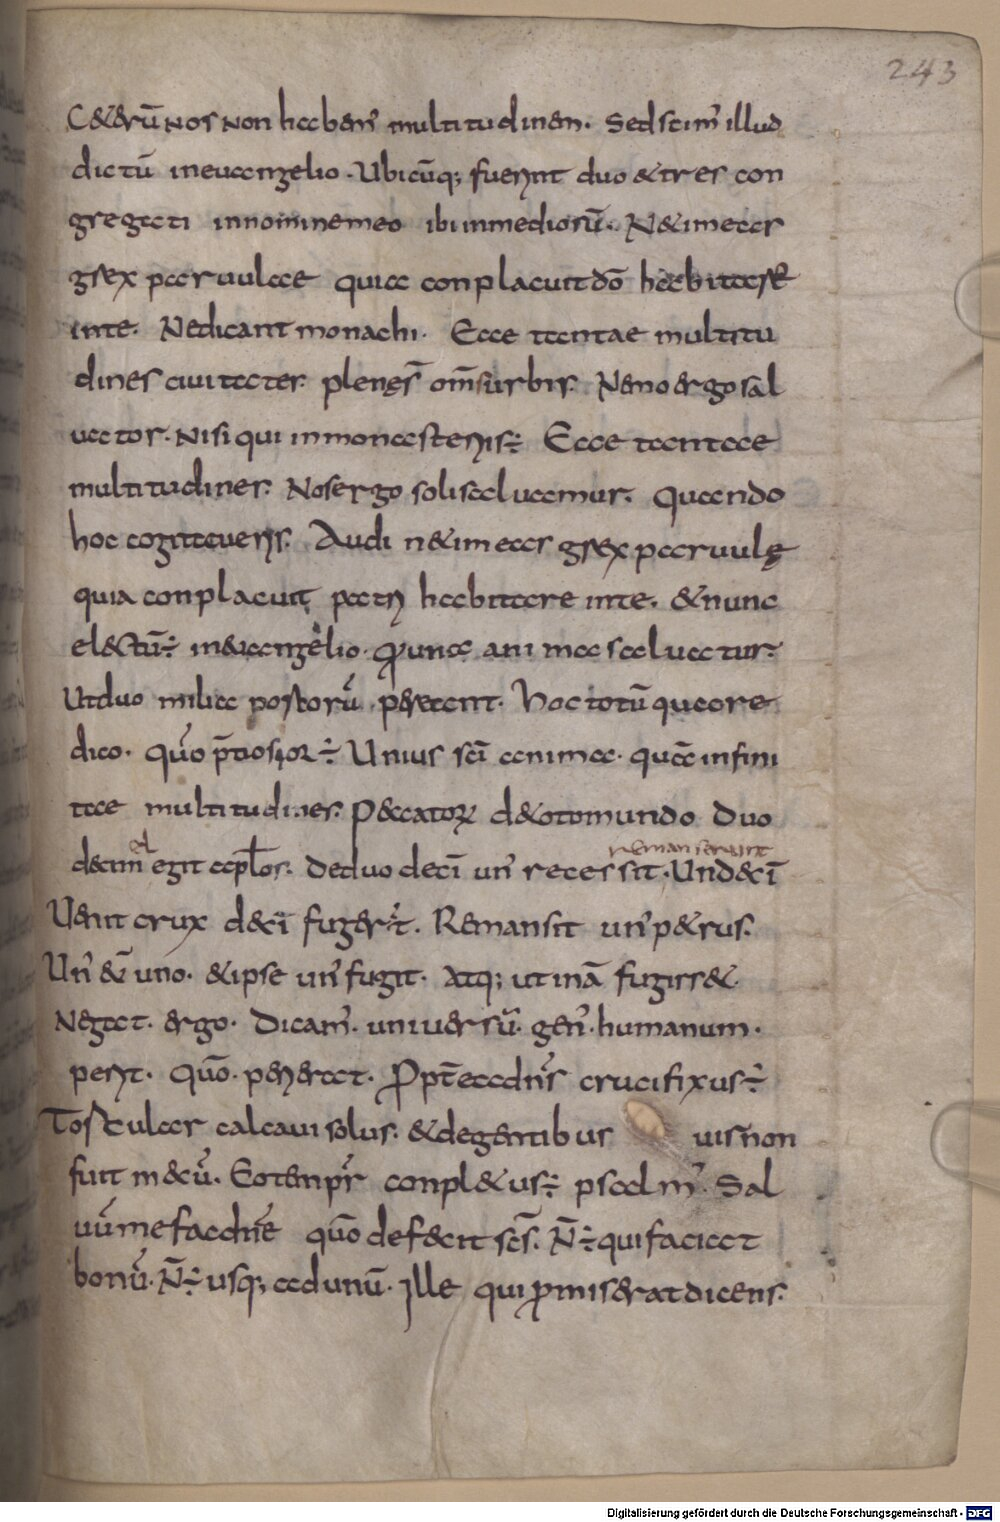 243
C&erū nos non habem' multitudinem. Sed scim' illud
dictū in euangelio. Ubicūq; fuerint duo & tres con
gregati in nomine meo ibi in medio sū. N& imear
grex paruulae quia conplacuit dō habitare
in te. Ne dicant monachi. Ecce tantae multitu
dines ciuitates. plenę s̄ om̄s urbis. Nemo ergo sal
uator. Nisi qui in monasteriis ÷ Ecce tantae
multitudines. Nos ergo soli saluamur. Quando
hoc cogitaueris. Audi n& imear grex paruulę
quia conplacuit patri habitare in te. & nunc
electū ÷ in euangelio. Qp una anima saluatur.
Ut duo milia porcorū perirent. Hoc totū quare
dico. quō p̄tiosior ÷ Unius sc̄i anima. quā infini
tae multitudines. Peccatorꝝ de toto mundo Duo
el
decim egit ap̄los. De duodecī un' recessit. Undecī
remanserunt
Uenit crux decī fuger't. Remansit un' p&rus.
Un' de uno. & ipse un' fugit. Atq; utinā fugiss&
Negat. ergo. Dicam'. uniuersū. gen' humanum.
perit. Quō. perierat. Propt̄ea dn̄s crucifixus ÷
Torcular calcaui solus. & de gentibus uir non
fuit mecū. Eo tempr̄ conpl&us ÷ psalm'. Sal
uū me fac dn̄e quō defecit sc̄s. N̄ ÷ qui faciat
bonū. N̄ ÷ usq; ad unū. Ille qui promiserat dicens.
Digitalisierung gefördert durch die Deutsche Forschungsgemeinschaft - DFG